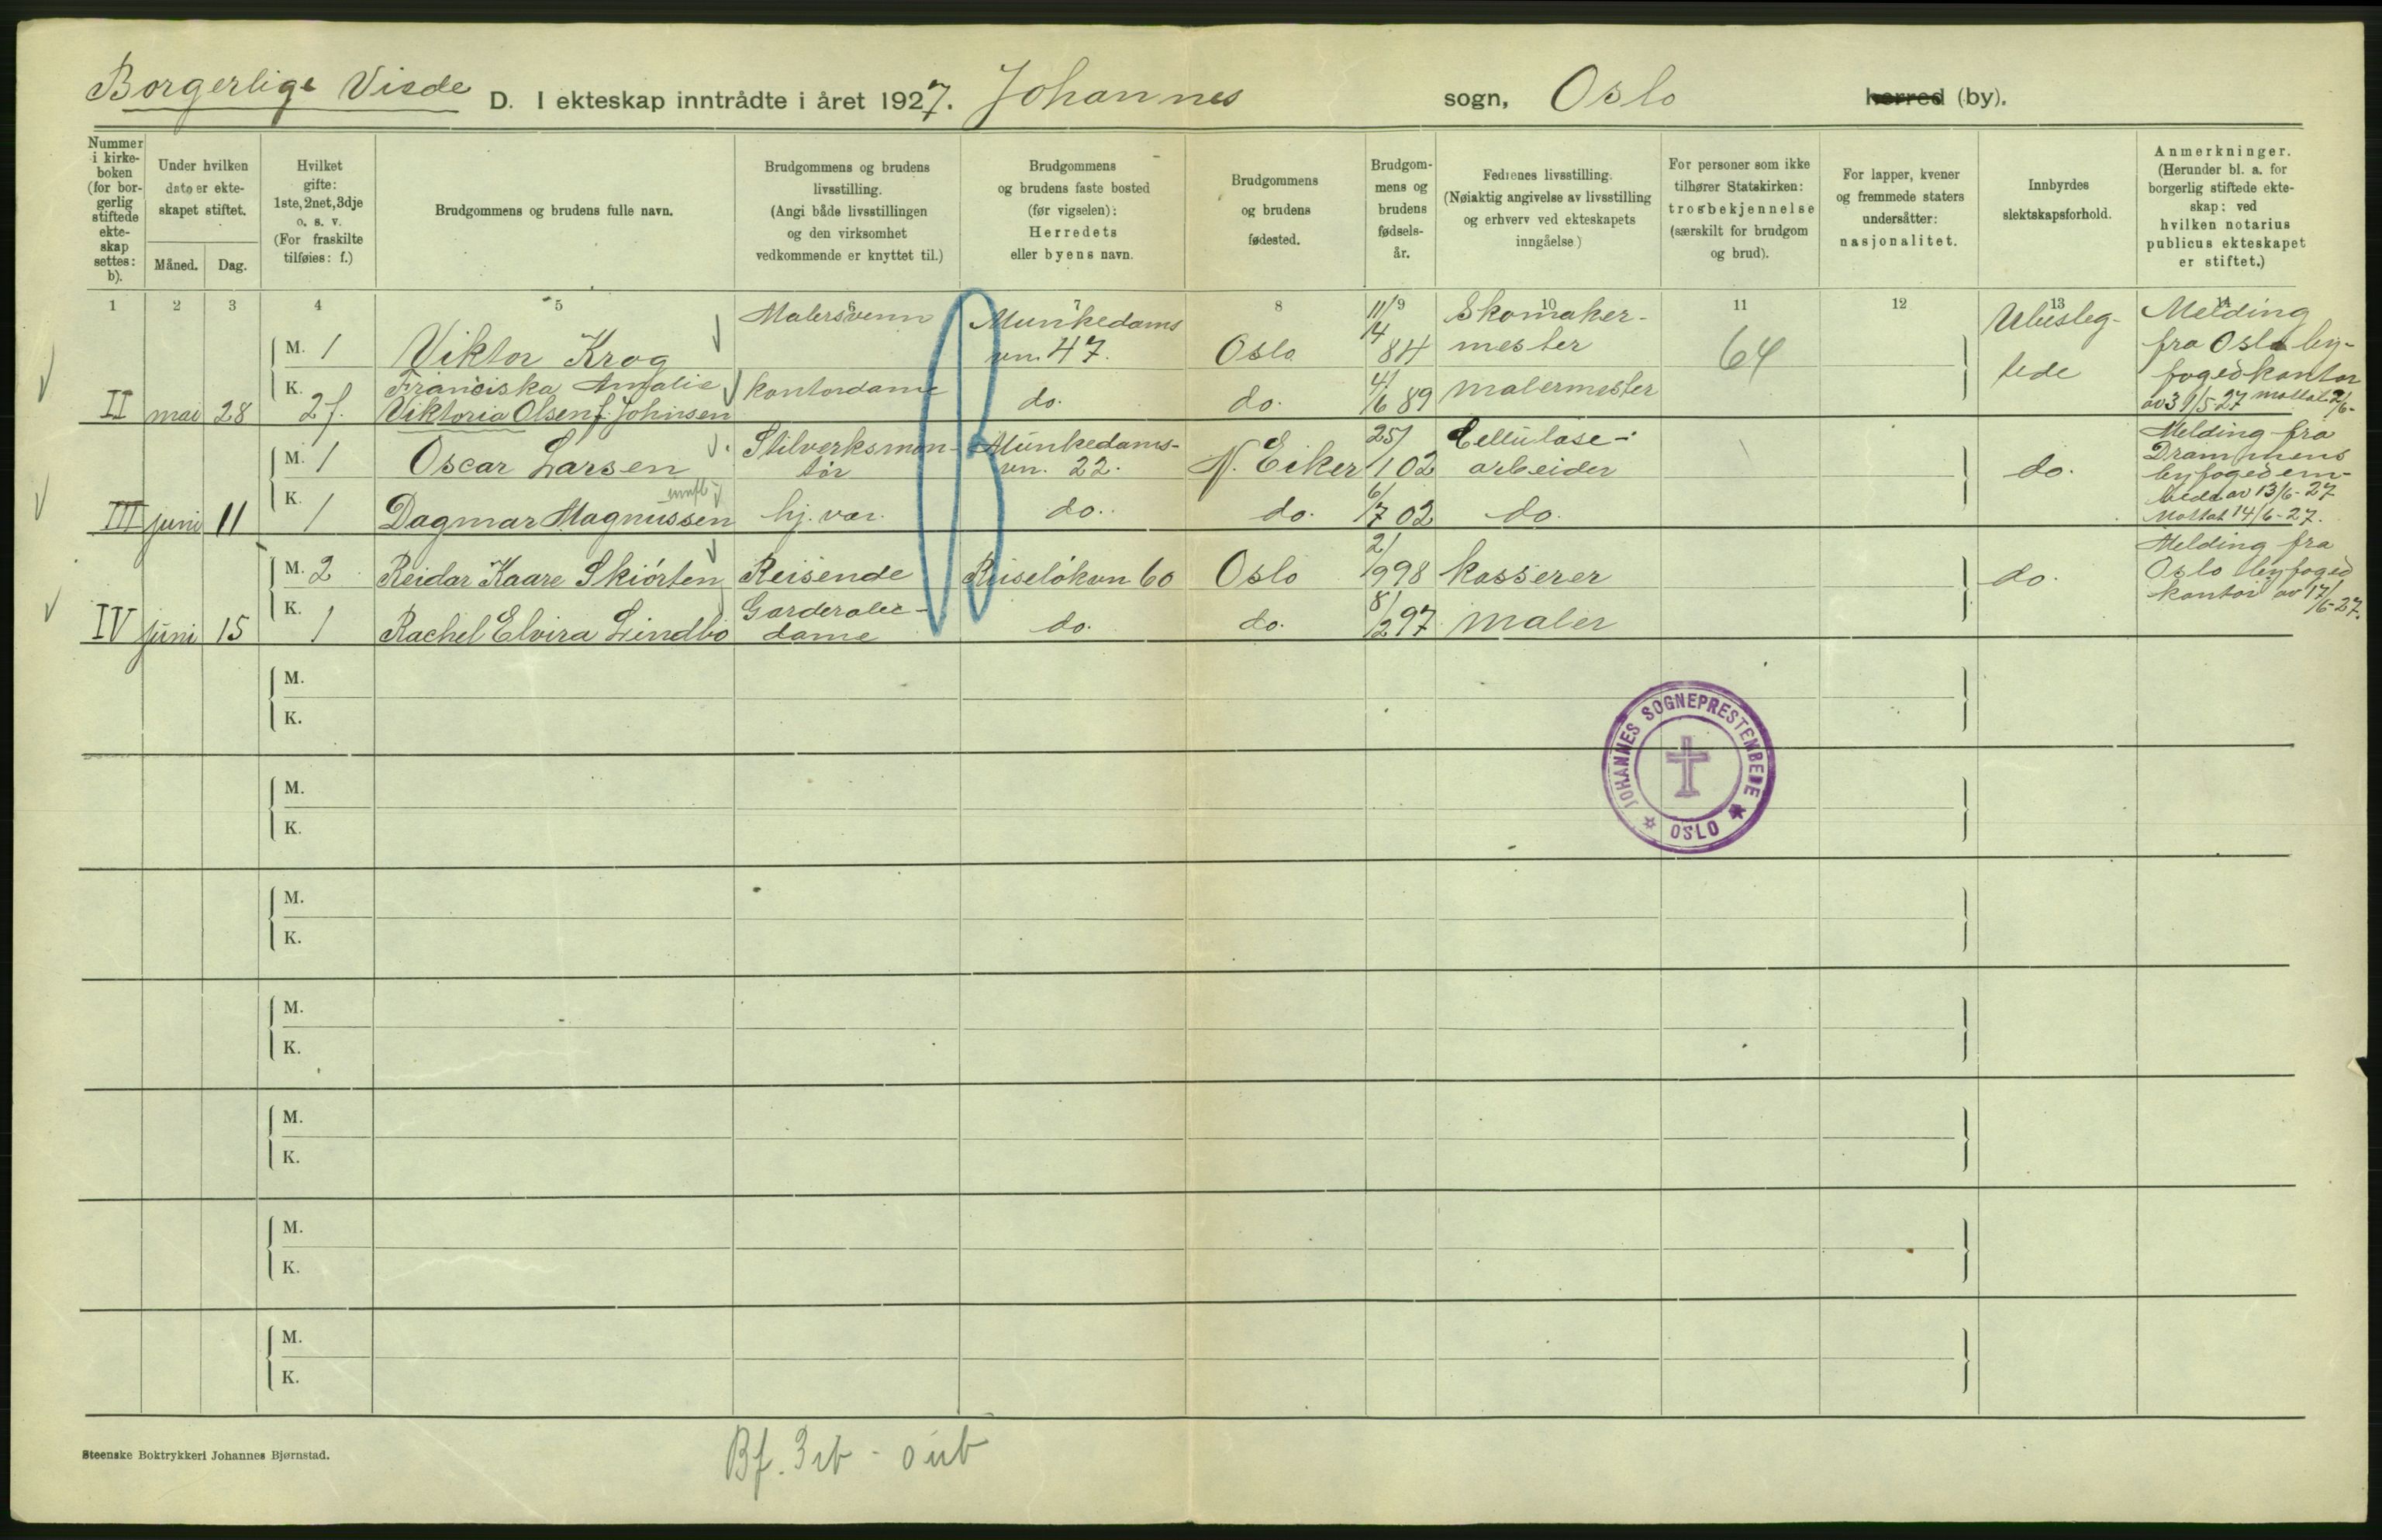 Borgerlige Viede D. I ekteskap inntrådte i året 1927. Johannes sogn, Oslo herred (by).
Nummer i kirke-boken (for bor-gerlig stiftede ekte-skap settes: b).
Under hvilken dato er ekte-skapet stiftet.
Måned. Dag.
Hvilket gifte: 1ste, 2net, 3dje o. s. v. (For fraskilte tilføies: f.)
Brudgommens og brudens fulle navn.
Brudgommens og brudens livsstilling. (Angi både livsstillingen og den virksomhet vedkommende er knyttet til.)
Brudgommens og brudens faste bosted (før vigselen): Herredets eller byens navn.
Brudgommens og brudens fødested.
Brudgom-mens og brudens fødsels-år.
Fedrenes livsstilling. (Nøiaktig angivelse av livsstilling og erhverv ved ekteskapets inngåelse.)
For personer som ikke tilhører Statskirken: trosbekjennelse (særskilt for brudgom og brud).
For lapper, kvener og fremmede staters undersåtter: nasjonalitet.
Innbyrdes slektskapsforhold.
Anmerkninger. (Herunder bl. a. for borgerlig stiftede ekte-skap: ved hvilken notarius publicus ekteskapet er stiftet.)
1 2 3 4 5 6 7 8 9 10 11 12 13 14
M. 1 Viktor Krog Malersvenn Munkedams vn. 47. Oslo 11/14 84 Skomaker-mester 64 Ubesleg-tede Melding fra Oslo by-fogedkontor av 31/5-27 mottat 2/6-
II mai 28 K. 2 f. Franciska Amalie Viktoria Olsen f. Johnsen kontordame do. do. 4/6 89 malermester
M. 1 Oscar Larsen Stilverksmon-tør Munkedams-vn. 22. N. Eiker 25/1 02 Cellulose-arbeider do. Melding fra Drammens byfogedem-bede av 13/6-27 Mottat 14/6-27.
III juni 11 K. 1 Dagmar Magnussen hj. vær. do. do. 6/7 02 do.
M. 2 Reidar Kaare Skiörten Reisende Ruseløkvn 60 Oslo 2/9 98 kasserer do. Melding fra Oslo byfoged kontor av 17/6-27.
IV juni 15 K. 1 Rachel Elvira Lindbo Garderobe-dame do. do. 8/2 97 maler
M.
K.
JOHANNES SOGNEPRESTEMBEDE
OSLO
M.
K.
M.
K.
M.
K.
M.
K.
M.
K.
M.
K.
Steenske Boktrykkeri Johannes Bjørnstad.
Bf. 3 ib - 0 ub